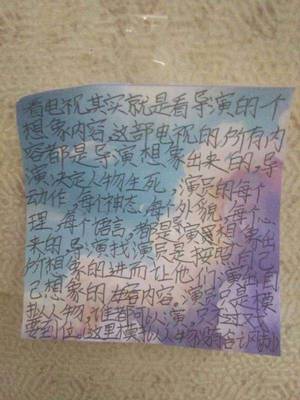 看电视其实就是看导演的个
想象内容,这部电视的所有内
容都是导演想象出来的,导
演决定人物生死,演员的每个
动作,每个神态,每个外貌,每个心
理,每个语言,都是导演想象出
来的,导演找演员是按照自己
所想象的进而让他们演出自
己想象的内容。演员只是模
拟人物,谁都可以演,只
要到位。这里模拟人物